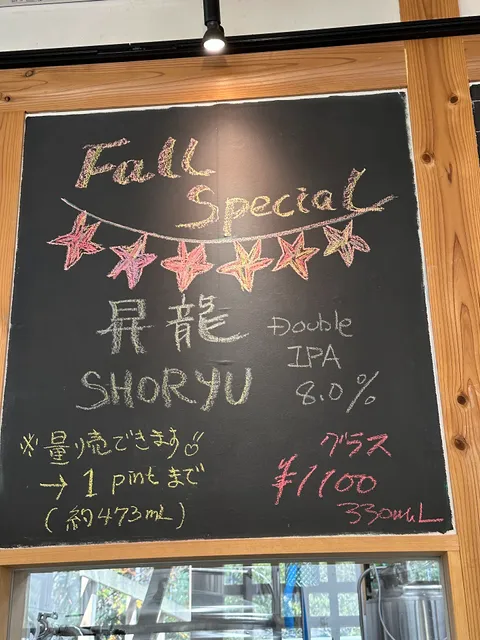 Fall
Special
昇龍
SHORYU
Double
IPA
8.0%
※量り売できます
→ 1 pintまで
(約473mL)
グラス
¥1100
330mL